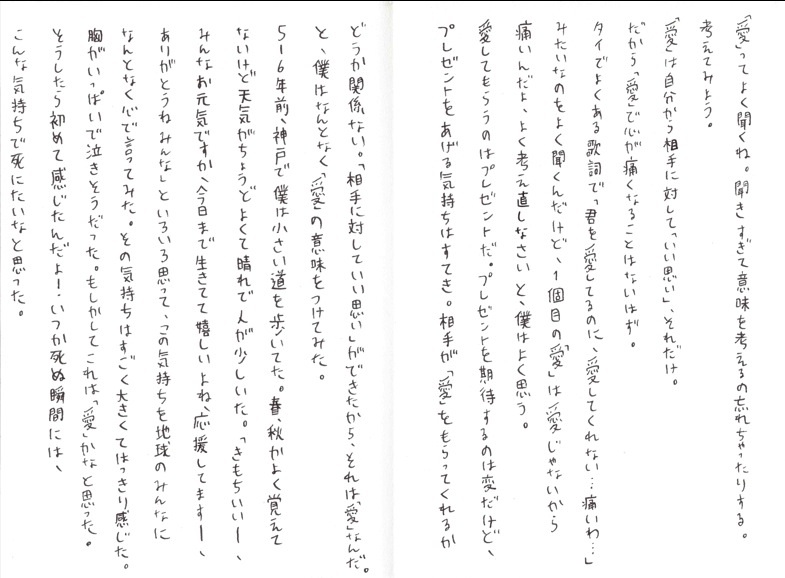 「愛」ってよく聞くね。聞きすぎて意味を考えるの忘れちゃったりする。
考えてみよう。
「愛」は自分から相手に対して「いい思い」、それだけ。
だから「愛」で心が痛くなることはないはず。
タイでよくある歌詞で「君を愛してるのに、愛してくれない…痛いわ…」
みたいなのをよく聞くんだけど、1個目の「愛」は愛じゃないから
痛いんだよ、よく考え直しなさい と、僕はよく思う。
愛してもらうのはプレゼントだ。プレゼントを期待するのは変だけど、
プレゼントをあげる気持ちはすてき。相手が「愛」をもらってくれるか
どうか関係ない。「相手に対していい思い」ができたから、それは「愛」なんだ。
と、僕はなんとなく「愛」の意味をつけてみた。
516年前、神戸で僕は小さい道を歩いてた。春、秋かよく覚えて
ないけど天気がちょうどよくて晴れで人が少しいた。「きもちいいー、
みんなお元気ですか、今日まで生きてて嬉しいよね、応援してますー、
ありがとうねみんな」といろいろ思って、この気持ちを地球のみんなに
なんとなく心で言ってみた。その気持ちはすごく大きくてはっきり感じた。
胸がいっぱいで泣きそうだった。もしかしてこれは「愛」かなと思った。
そうしたら初めて感じたんだよー。いつか死ぬ瞬間には、
こんな気持ちで死にたいなと思った。